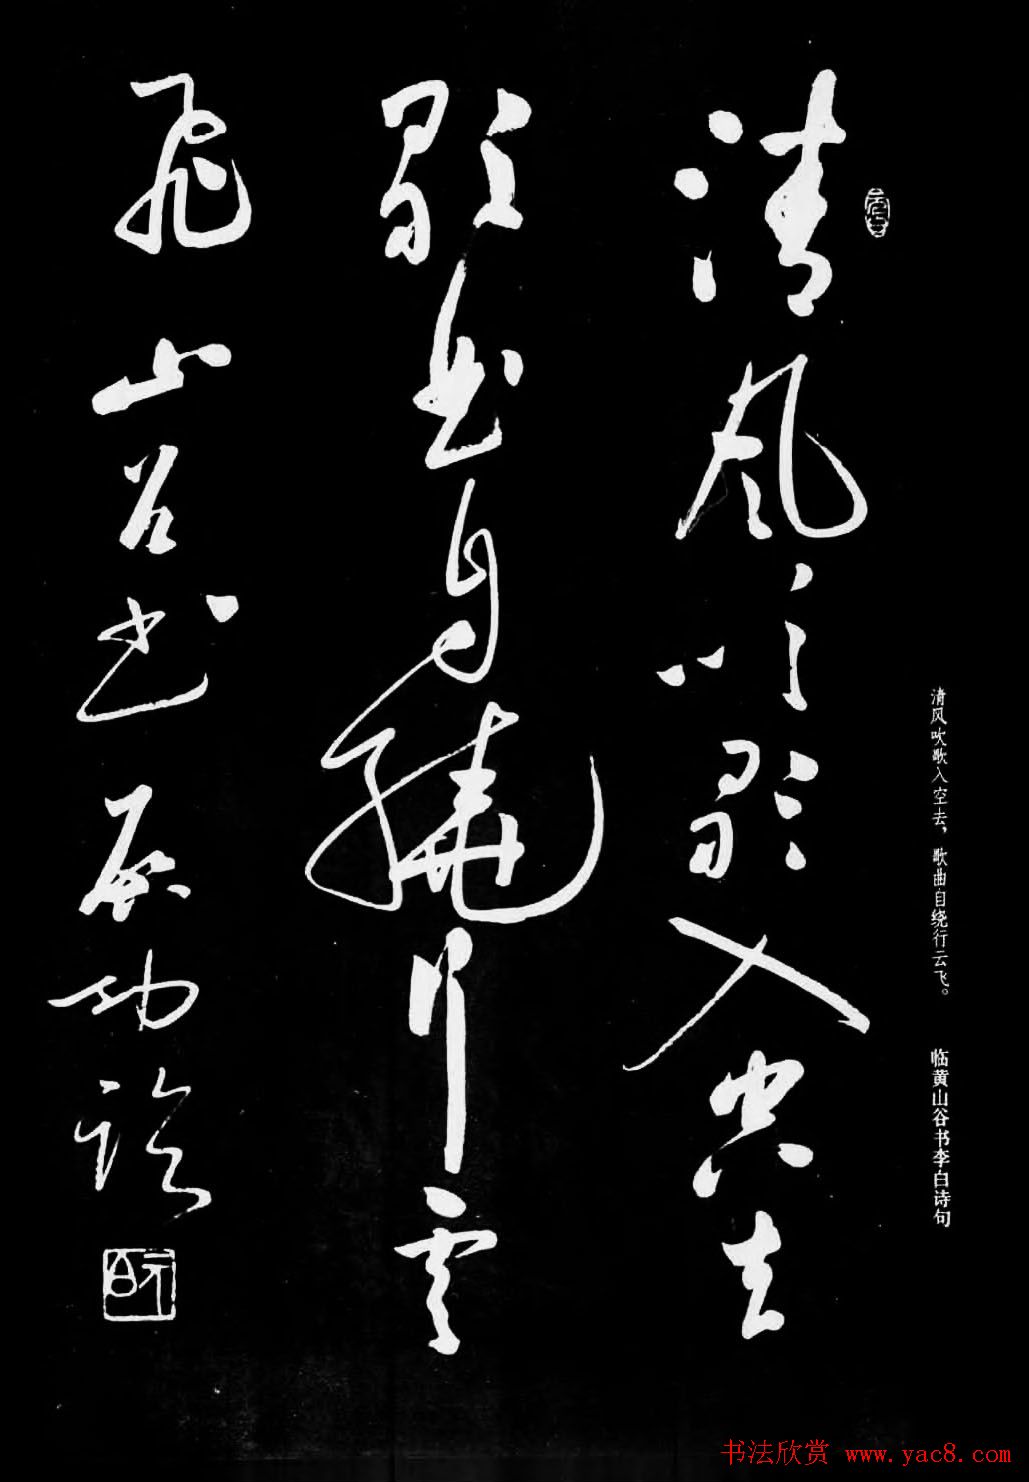 清风吹歌入空去
歌曲自绕行云
飞 山谷书 启功临
清风吹歌入空去，歌曲自绕行云飞。
临黄山谷书李白诗句
书法欣赏 www.yac8.com